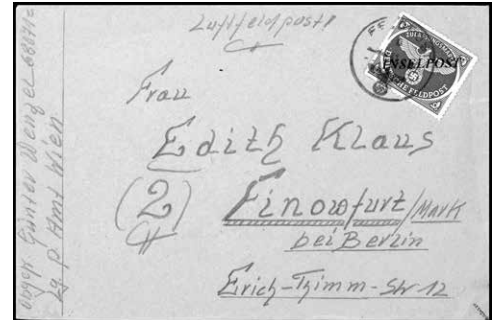 Luftfeldpost!
FE
INSELPOST
DEUTSCHE FELDPOST
Frau
Edith Klaus
(2) Finowfurt/Mark
bei Berlin
Erich-Thimm-Str 12
Günter Wenzel 68871
Lg. P. Amt Wien